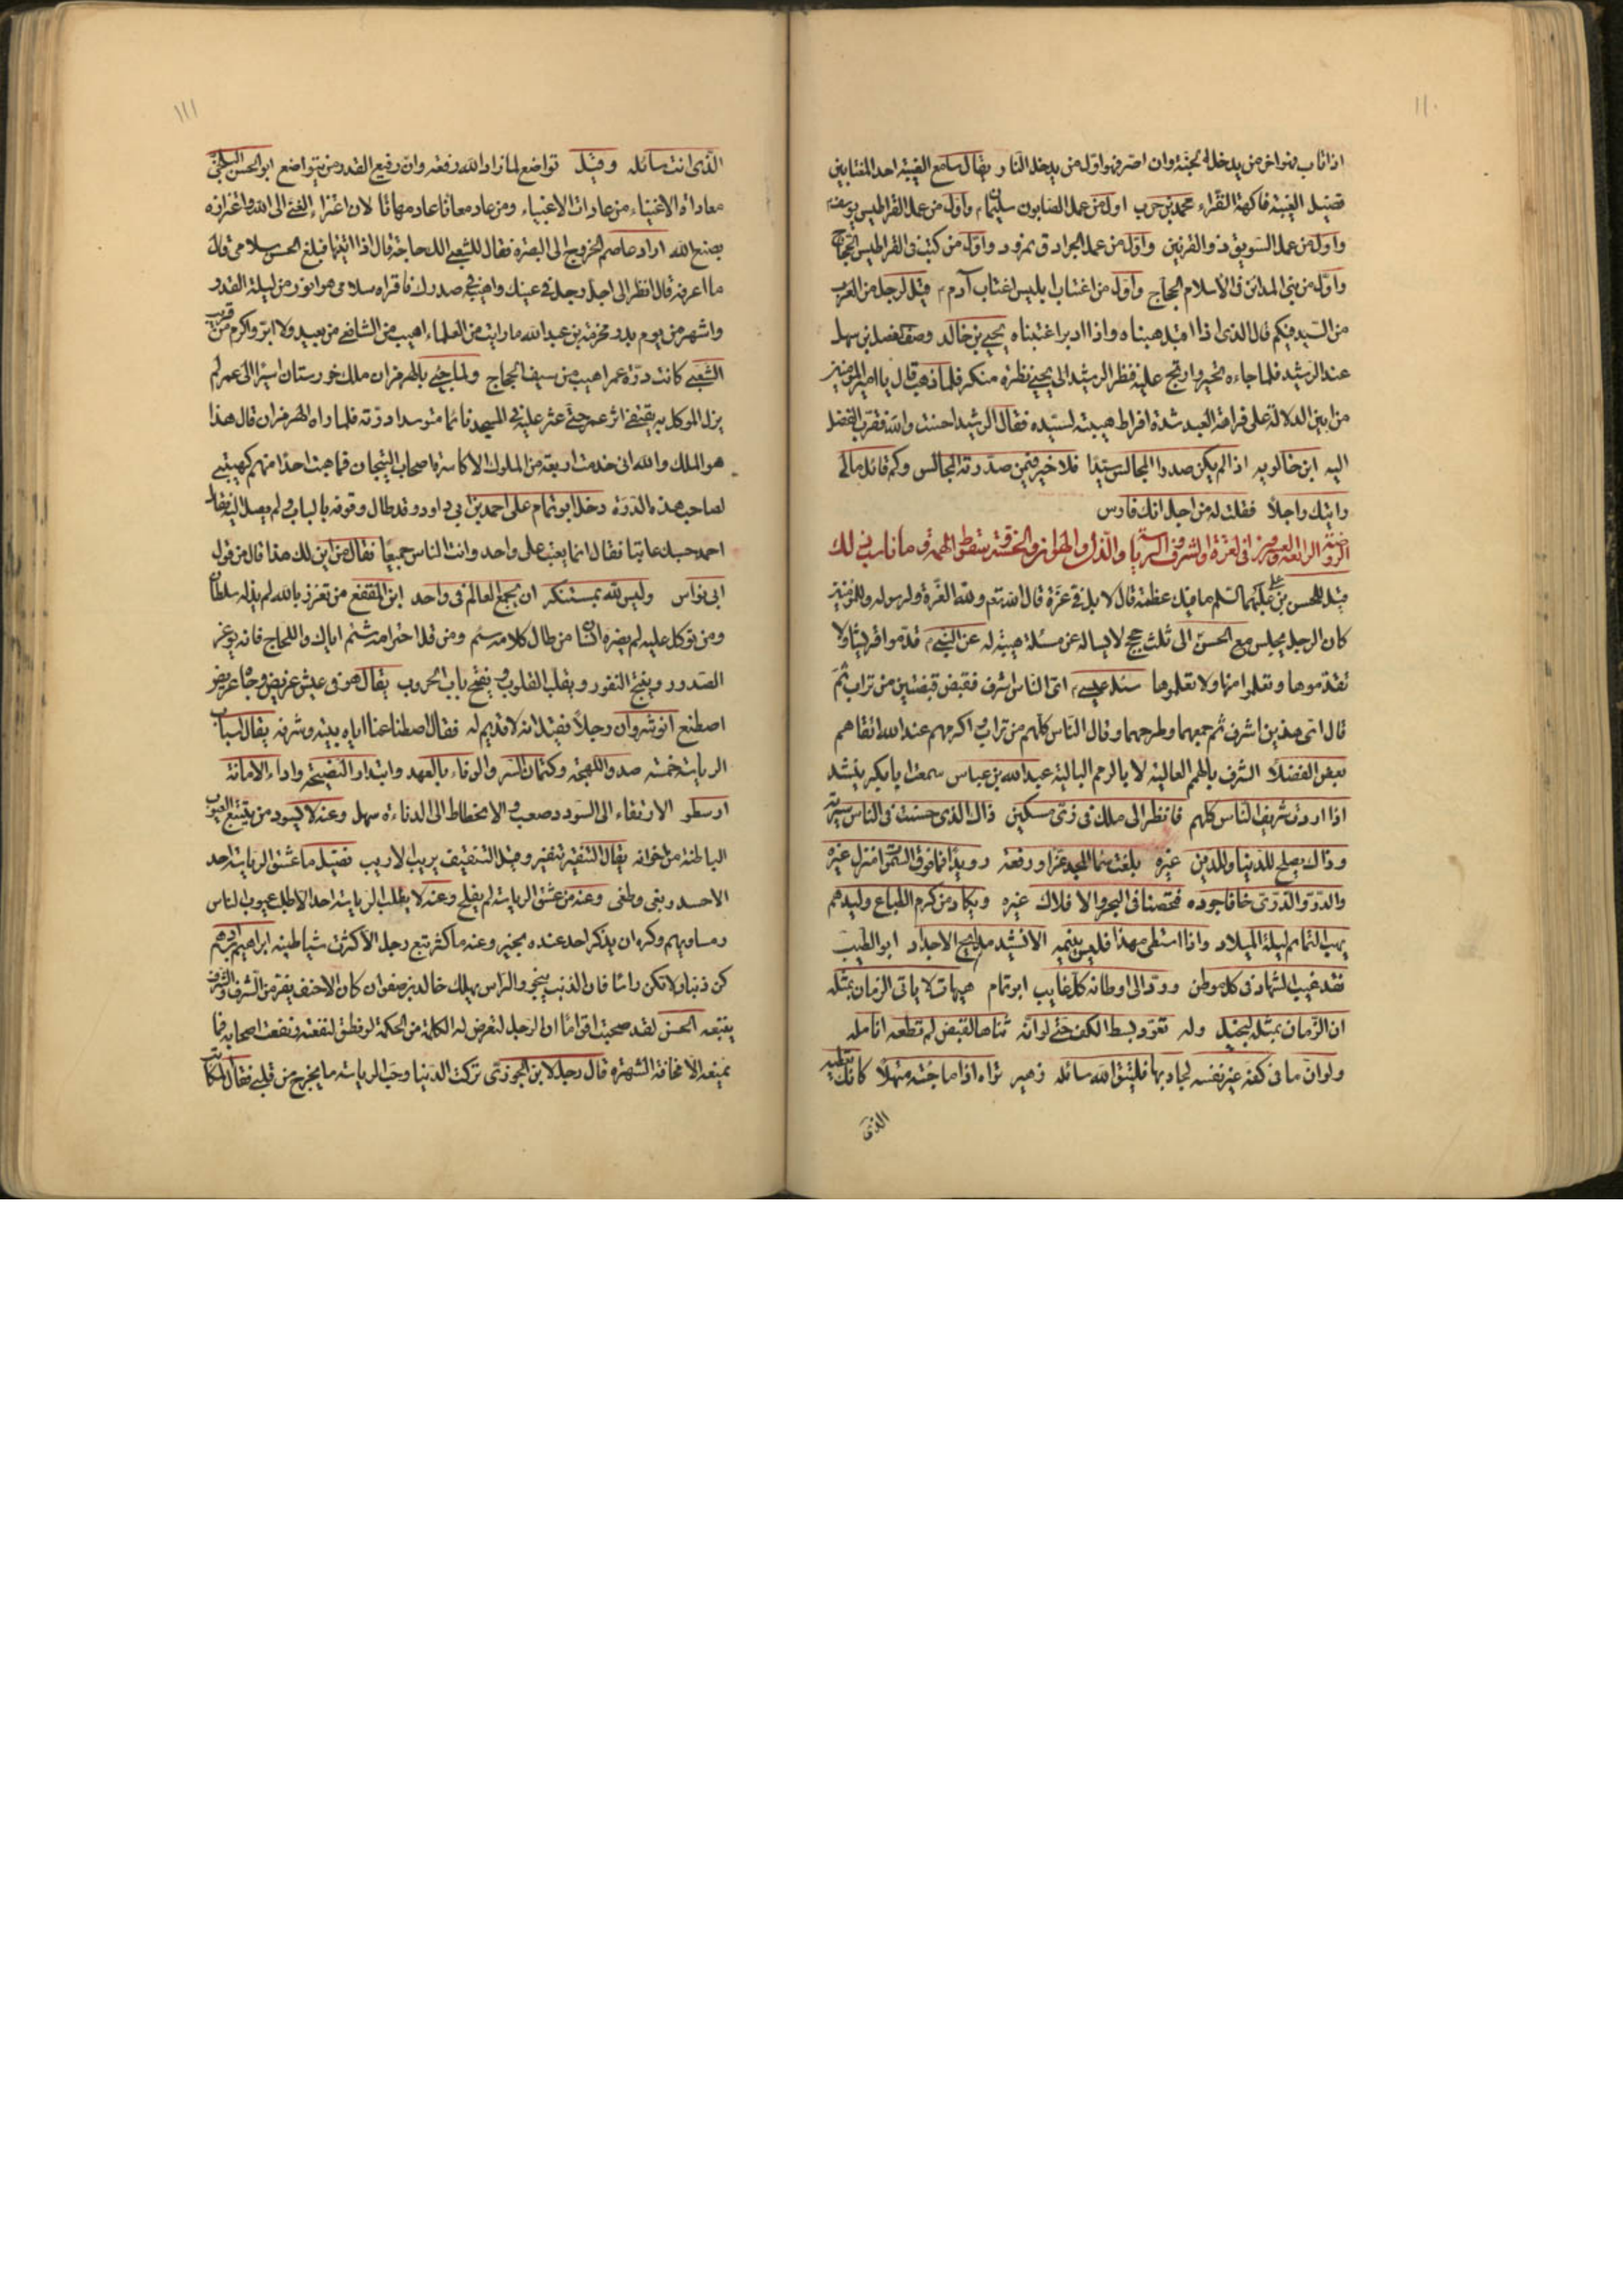 ١١٠
اذا تاب فهو اخر من يدخل الجنة وان اصر فهو اول من يدخل النار يقال سامع الغيبة احد المغتابين
فضيل الغيبة فاكهة القراء محمد بن حرب اول من عمل الصابون سليمان واول من عمل القراطيس يوسف
واول من عمل السويق ذو القرنين واول من عمل الجرادق نمرود واول من كتب فى القراطيس الحجاج
واول من بنى المدائن فى الاسلام الحجاج واول من اغتاب ابليس اغتاب آدم م قيل لرجل من العرب
من السيد فيكم قال الذى اذا اقبل هبناه واذا ادبر اغتبناه يحيى بن خالد وصف فضل بن سهل
عند الرشيد فلما جاءه تحير وارتج عليه فنظر الرشيد الى يحيى نظرة منكر فلما ذهب قال يا امير المؤمنين
من ابين الدلالة على فراهة العبد شدة افراط هيبته لسيده فقال الرشيد احسنت والله فقرب الفضل
اليه ابن خالويه اذا لم يكن صدر المجالس سيدا فلا خير فيمن صدرته المجالس وكم قائل مالى
رايتك راجلا فقلت له من اجل انك فارس
الروضة الرابعة والعشرون فى العزة والشرف والرياسة والذل والهوان والخسة وسقوط الهمة وما ناسب ذلك
قيل للحسن بن على عليهما السلم ما فيك عظمة قال لا بل فى عزة قال الله تعم ولله العزة ولرسوله وللمؤمنين
كان الرجل يجلس مع الحسن الى ثلث حجج لا يساله عن مسئلة هيبة له عن النبي م قدموا قريشا ولا
تقدموها وتعلموا منها ولا تعلموها سئل عيسى م اى الناس اشرف فقبض قبضتين من تراب ثم
قال اى هذين اشرف ثم جمعهما وطرحهما وقال الناس كلهم من تراب اكرمهم عند الله اتقاهم
بعض الفضلا الشرف بالهمم العالية لا بالرمم البالية عبد الله بن عباس سمعت ابا بكر ينشد
اذا اردت شريف الناس كلهم فانظر الى ملك فى زى مسكين ذاك الذى حسنت فى الناس سيرته
وذاك يصلح للدنيا وللدين غيره بلغت سما المجد عزا ورفعة رويدا فما فوق السموا منزل غيره
والدر والدرى خافا جوده فتحصنا فى البحر والافلاك غيره ويكاد من كرم الطباع وليدهم
يهب التمائم ليلة الميلاد واذا استطى مهدا فليس ينيمه الا نشيد مدايح الاجداد ابو الطيب
فقد غيب الشهاد فى كل موطن ورد الى اوطانه كل غايب ابو تمام هيهات لا ياتى الزمان بمثله
ان الزمان بمثله لبخيل وله تعود بسط الكف حتى لو انه ثناها لقبض لم تطعه انامله
ولو ان ما فى كفه غير نفسه لجاد بها فليتق الله سائله زهير تراه اذا ما جئته متهللا كانك تعطيه
الذى
١١١
الذى انت سائله وقيل تواضع لما زاد الله رفعة وان رفيع القدر من يتواضع ابو الحسن البلخى
معاداة الاغنياء من عادات الاغبياء ومن عاد معانا عاد مهانا لان اعتزاء الغنى الى الله واعتزازه
بصنع الله اراد عاصم الخروج الى البصرة فقال للشعبى الك حاجة قال اذا اتيتها فبلغ الحسن سلامى قال
ما اعرفه قال انظر الى اجل رجل فى عينك واهيبه فى صدرك فاقراه سلامى هو انور من ليلة القدر
واشهر من يوم بدر مخرمة بن عبد الله ما رايت من العلماء اهيب من الشافعى من بعيد ولا ابر واكرم من قريب
الشعبى كانت درة عمر اهيب من سيف الحجاج ولما جئ بالهرمزان ملك خورستان اسيرا الى عمر لم
يزل الموكل به يقتفى اثر عمر حتى عثر عليه فى المسجد نائما متوسدا درته فلما راه الهرمزان قال هذا
هو الملك والله انى خدمت اربعة من الملوك الاكاسرة اصحاب التيجان فما هبت احدا منهم كهيبتى
لصاحب هذه الدرة دخل ابو تمام على احمد بن ابى داود وقد طال وقوفه بالباب ولم يصل اليه فقال
احمد حسبك عاتبا فقال انما يعتب على واحد وانت الناس جميعا فقال من اين لك هذا قال من قول
ابى نواس وليس لله بمستنكر ان يجمع العالم فى واحد ابن المقفع من تعزز بالله لم يذله سلطان
ومن توكل عليه لم يضره انسان من طال كلامه سئم ومن قل احترامه شتم اياك واللجاج فانه يوغر
الصدور وينتج النفور ويقلب القلوب ويفتح باب الحروب يقال هو فى عيش عريض وجاه عريض
اصطنع انوشروان رجلا فقيل انه لا قديم له فقال اصطناعنا اياه بيته وشرفه يقال اسباب
الرياسة خمسة صدق اللهجة وكتمان السر والوفاء بالعهد وابتدار النصيحة واداء الامانة
ارسطو الارتقاء الى السودد صعب والانحطاط الى الدناءة سهل وعنه لا يسود من يتتبع العيوب
الباطنة من اخوانه يقال التنقير تنفير وقيل التنفيق يريب الاريب فضيل ما عشق الرياسة احد
الا حسد وبغى وطغى وعنه من عشق الرياسة لم يفلح وعنه لا يطلب الرياسة احد الا طلب عيوب الناس
ومساويهم وكره ان يذكر احد عنده بخير وعنه ما كثر تبع رجل الا كثرت شياطينه ابراهيم بن ادهم
كن ذنبا ولا تكن راسا فان الذنب ينجو والراس يهلك خالد بن صفوان كان الاحنف يفر من الشرف والشرف
يتبعه الحسن لقد صحبت اقواما ان الرجل لتعرض له الكلمة من الحكمة لو نطق لنفعته ونفعت اصحابه فما
يمنعه الا مخافة الشهرة قال رجل لابن الجوزى تركت الدنيا وحب الرياسة ما يخرج من قلبى فقال المكاتب